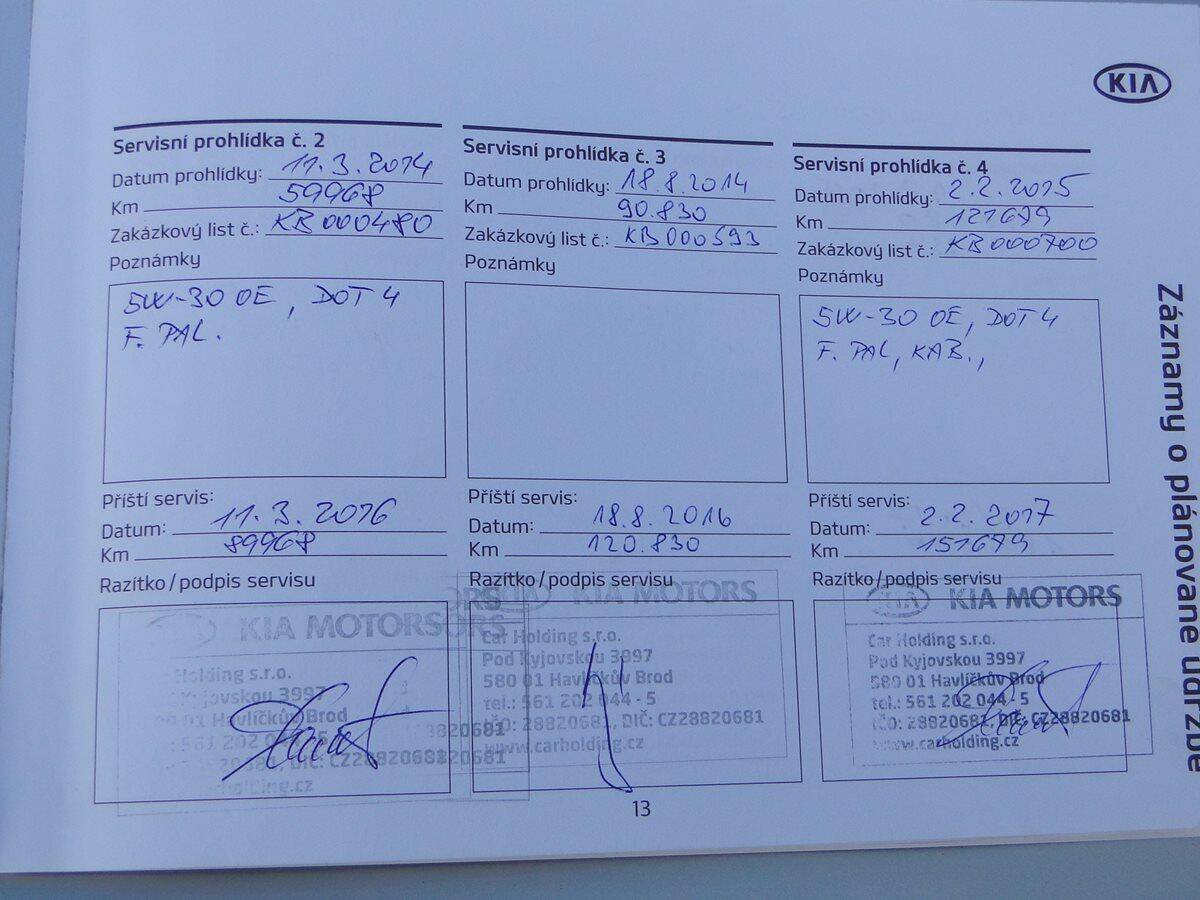 KIA
Servisní prohlídka č. 2
Datum prohlídky: 11.3.2014
Km 59968
Zakázkový list č.: KB000480
Poznámky
5W-30 OE, DOT 4
F. PAL.
Příští servis:
Datum: 11.3.2016
Km 89968
Razítko/podpis servisu
KIA MOTORS
Holding s.r.o.
Kyjovskou 3997
01 Havlíčkův Brod
Servisní prohlídka č. 3
Datum prohlídky: 18.8.2014
Km 90.830
Zakázkový list č.: KB000593
Poznámky
Příští servis:
Datum: 18.8.2016
Km 120.830
Razítko/podpis servisu
KIA MOTORS
Car Holding s.r.o.
Pod Kyjovskou 3997
580 01 Havlíčkův Brod
tel.: 561 202 044 - 5
IČO: 28820681, DIČ: CZ28820681
www.carholding.cz
Servisní prohlídka č. 4
Datum prohlídky: 2.2.2015
Km 121679
Zakázkový list č.: KB000700
Poznámky
5W-30 OE, DOT 4
F. PAL, KAB.,
Příští servis:
Datum: 2.2.2017
Km 151679
Razítko/podpis servisu
KIA MOTORS
Car Holding s.r.o.
Pod Kyjovskou 3997
580 01 Havlíčkův Brod
tel.: 561 202 044 - 5
IČO: 28820681, DIČ: CZ28820681
www.carholding.cz
Záznamy o plánované údržbě
13